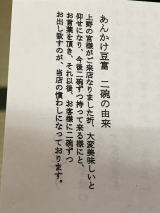 あんかけ豆富 二碗の由来
上野の宮様がご来店なりました折、大変美味しいと
仰せになり、今後二碗ずつ持って来る様にと、
お言葉を頂き、それ以後、お客様に二碗ずつ
お出し致すのが、当店の慣わしになっております。